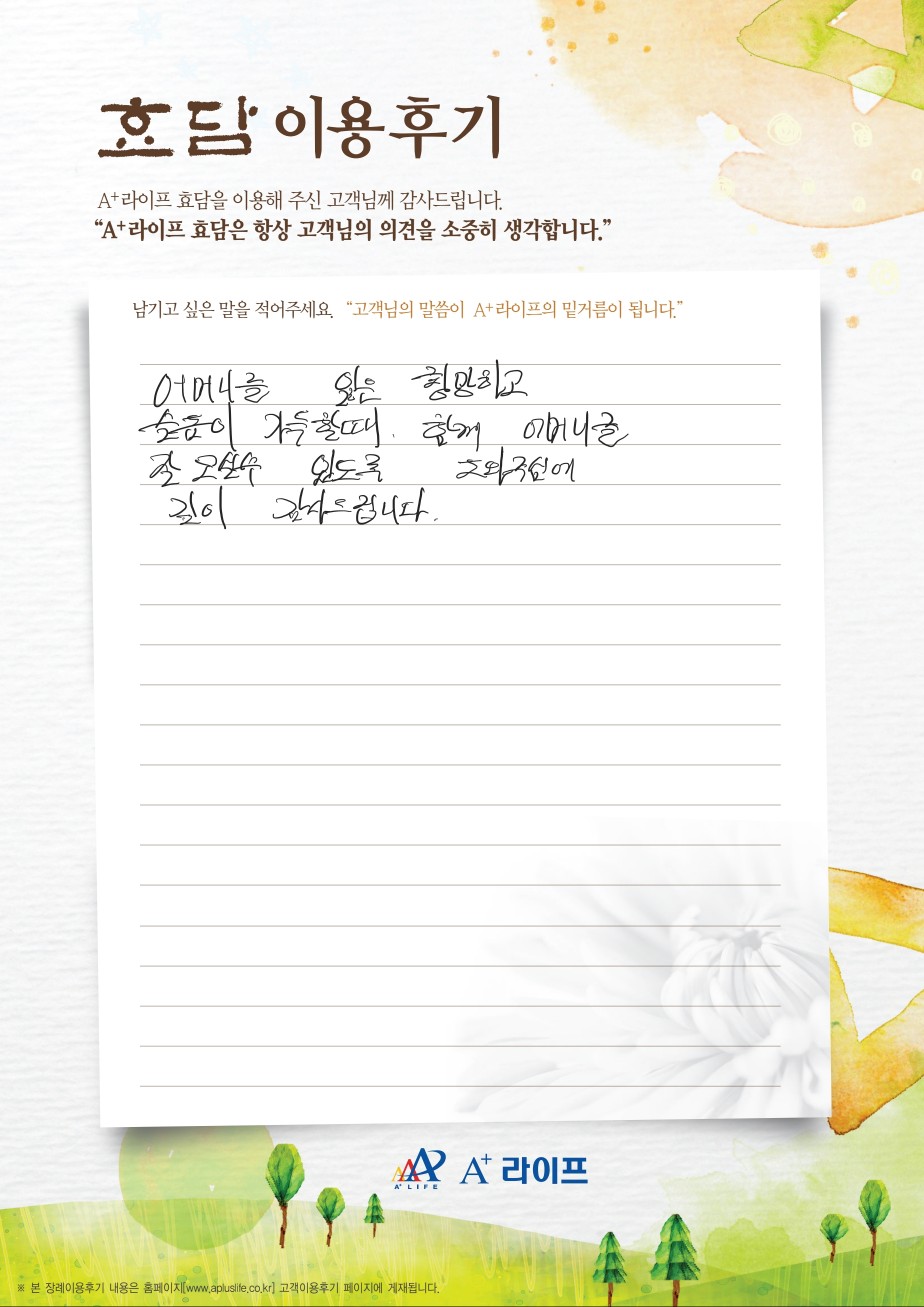 효담 이용후기
A+라이프 효담을 이용해 주신 고객님께 감사드립니다.
“A+라이프 효담은 항상 고객님의 의견을 소중히 생각합니다.”
남기고 싶은 말을 적어주세요. “고객님의 말씀이 A+라이프의 밑거름이 됩니다.”
어머니를 잃은 황망하고
슬픔이 가득할때. 함께 어머니를
잘 모실수 있도록 도와주심에
깊이 감사드립니다.
A+ LIFE A+ 라이프
※ 본 장례이용후기 내용은 홈페이지[www.apluslife.co.kr] 고객이용후기 페이지에 게재됩니다.